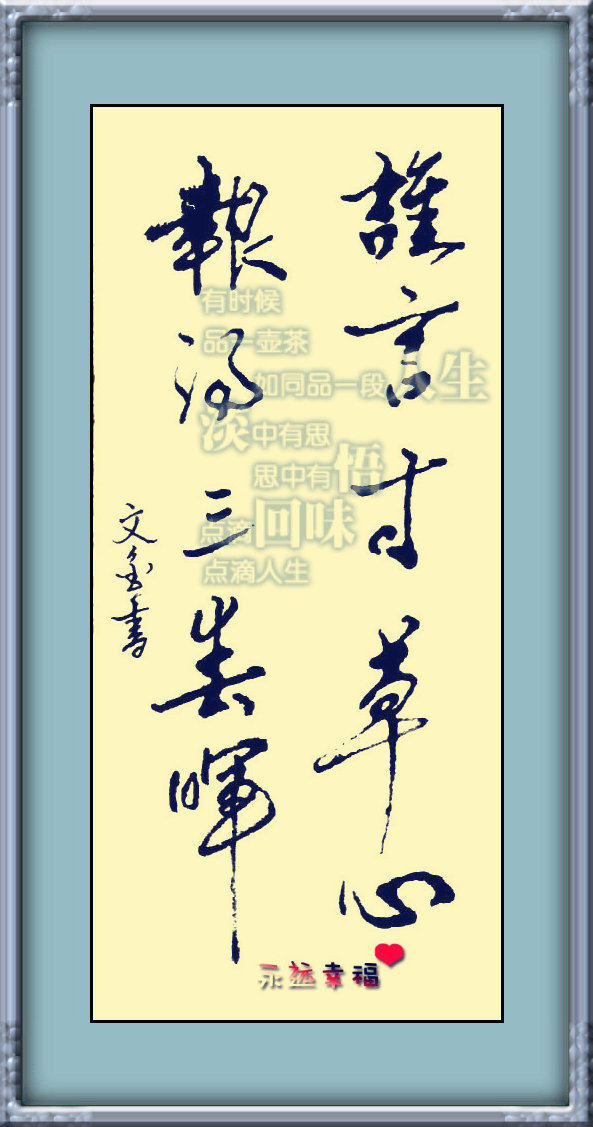 誰言寸草心
報得三春暉
文金書
有时候
品一壶茶
如同品一段人生
淡中有思
思中有悟
点滴回味
点滴人生
永远幸福